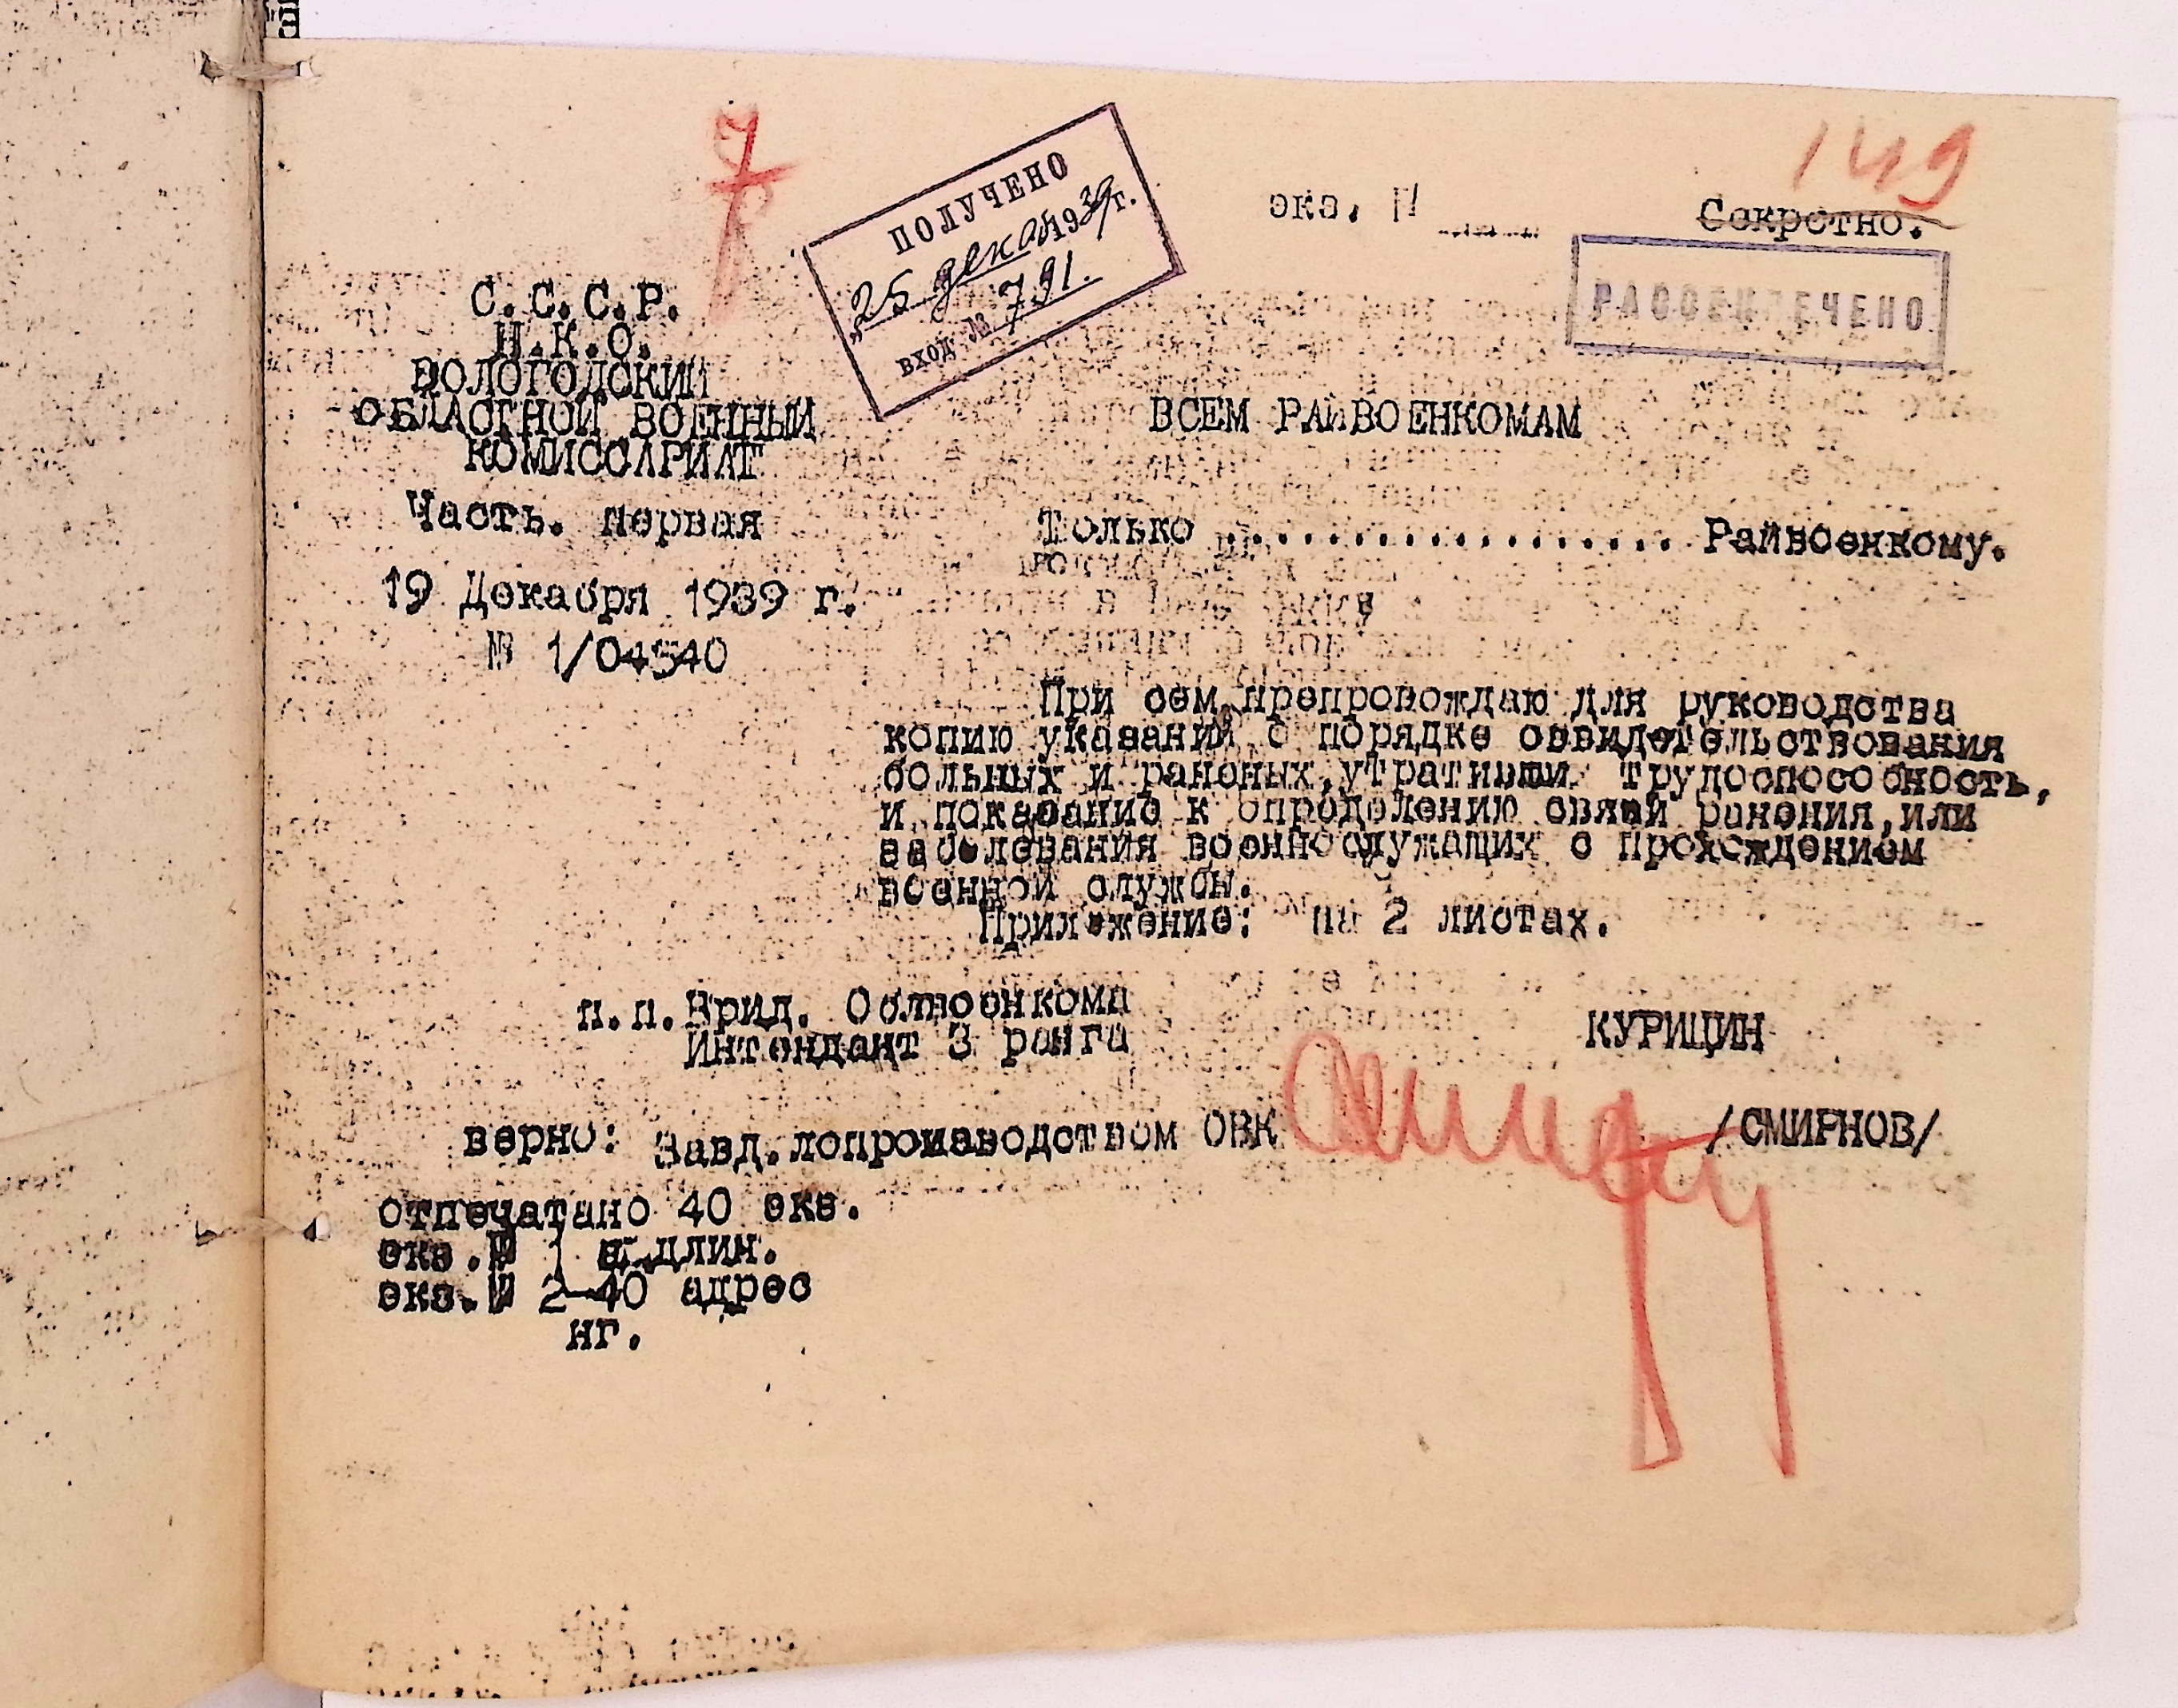 7
149
экз. №
Секретно.
ПОЛУЧЕНО
25 декаб 1939 г.
ВХОД № 791.
РАССЕКРЕЧЕНО
С.С.С.Р.
Н.К.О.
ВОЛОГОДСКИЙ
ОБЛАСТНОЙ ВОЕННЫЙ
КОМИССАРИАТ
Часть. первая
19 Декабря 1939 г.
№ 1/04540
ВСЕМ РАЙВОЕНКОМАМ
Только .................... Райвоенкому.
При сем препровождаю для руководства
копию указаний о порядке освидетельствования
больных и раненых, утративши трудоспособность,
и показание к определению связи ранения, или
заболевания военнослужащих с прохождением
военной службы.
Приложение: на 2 листах.
п.п. Врид. Облвоенкома
Интендант 3 ранга КУРИЦИН
верно: Завд.лопроизводством ОВК /СМИРНОВ/
отпечатано 40 экз.
экз.№ 1 адлин.
экз.№ 2-40 адрес
нг.